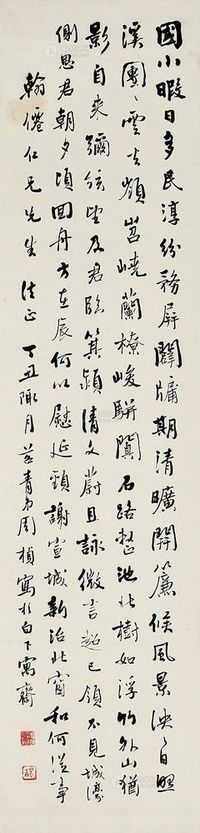 國小暇日多民淳紛務屏闢牖期清曠開簾候風景泱〻日照
溪團〻雲去嶺岧嶢蘭橑峻駢闐石路整池北樹如浮竹外山猶
影自來彌弦望及君臨箕潁清文蔚且詠微言超已領不見城濠
側思君朝夕頃回舟方在辰何以慰延頸謝宣城新治北窗和何從事
翰僊仁兄先生 法正 丁丑陬月 苕青弟周楨寫於白下寓齋